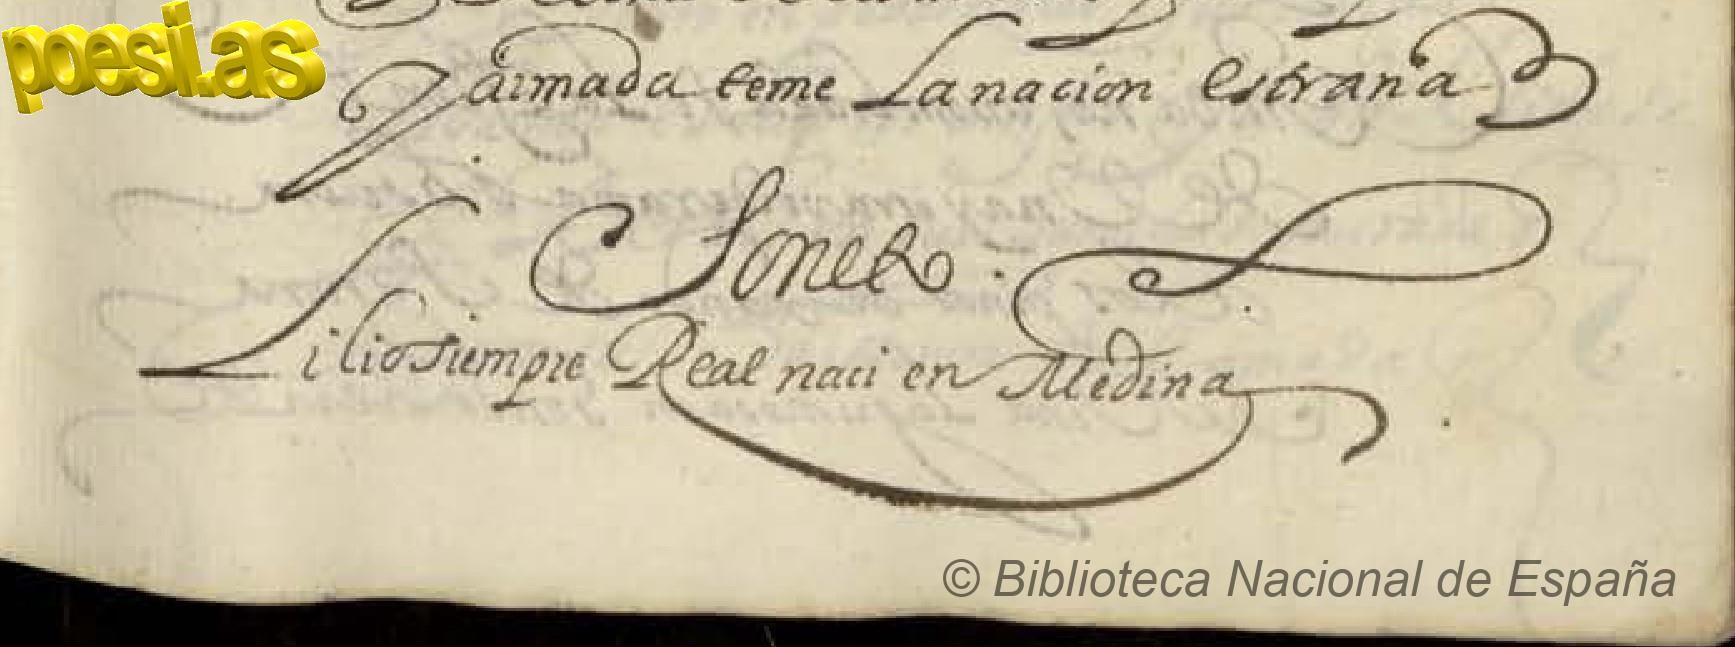 poesi.as
Y armada teme La nacion estraña
Soneto.
Lilio siempre Real naci en Medina
© Biblioteca Nacional de España